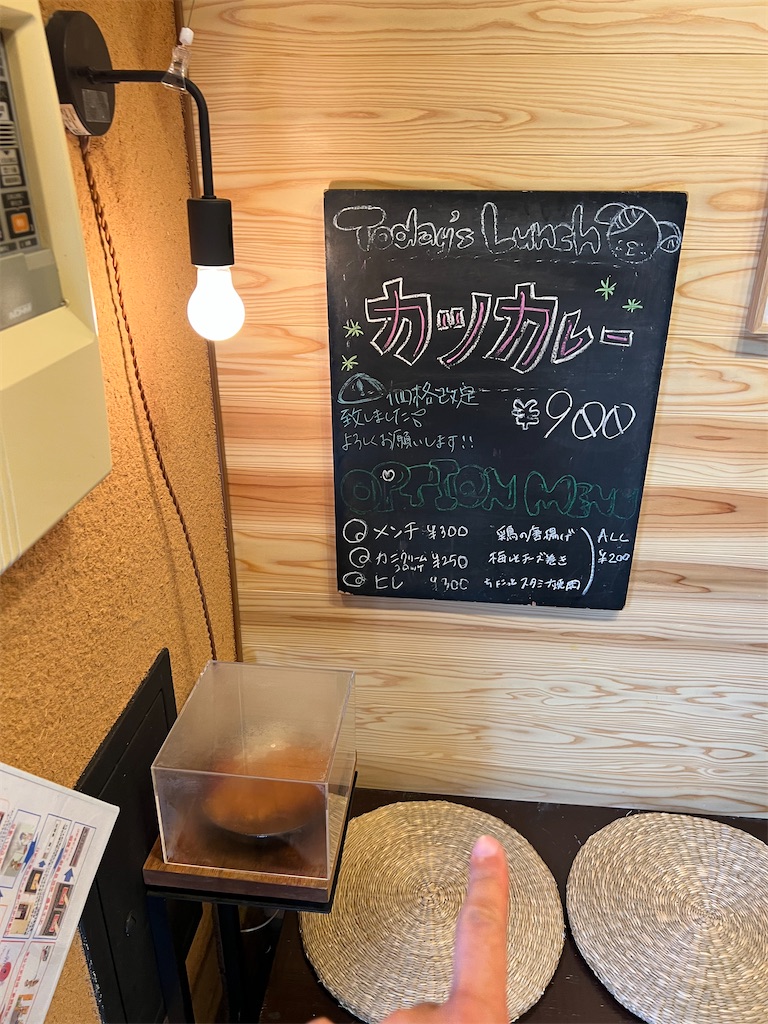 Today's Lunch
カツカレー
価格改定
致しました
よろしくお願いします!!
¥900
OPTION MENU
メンチ ¥300
カニクリームコロッケ ¥250
ヒレ ¥300
鶏の唐揚げ
梅しそチーズ巻き
ちょこっとスタミナ焼肉
ALL
¥200